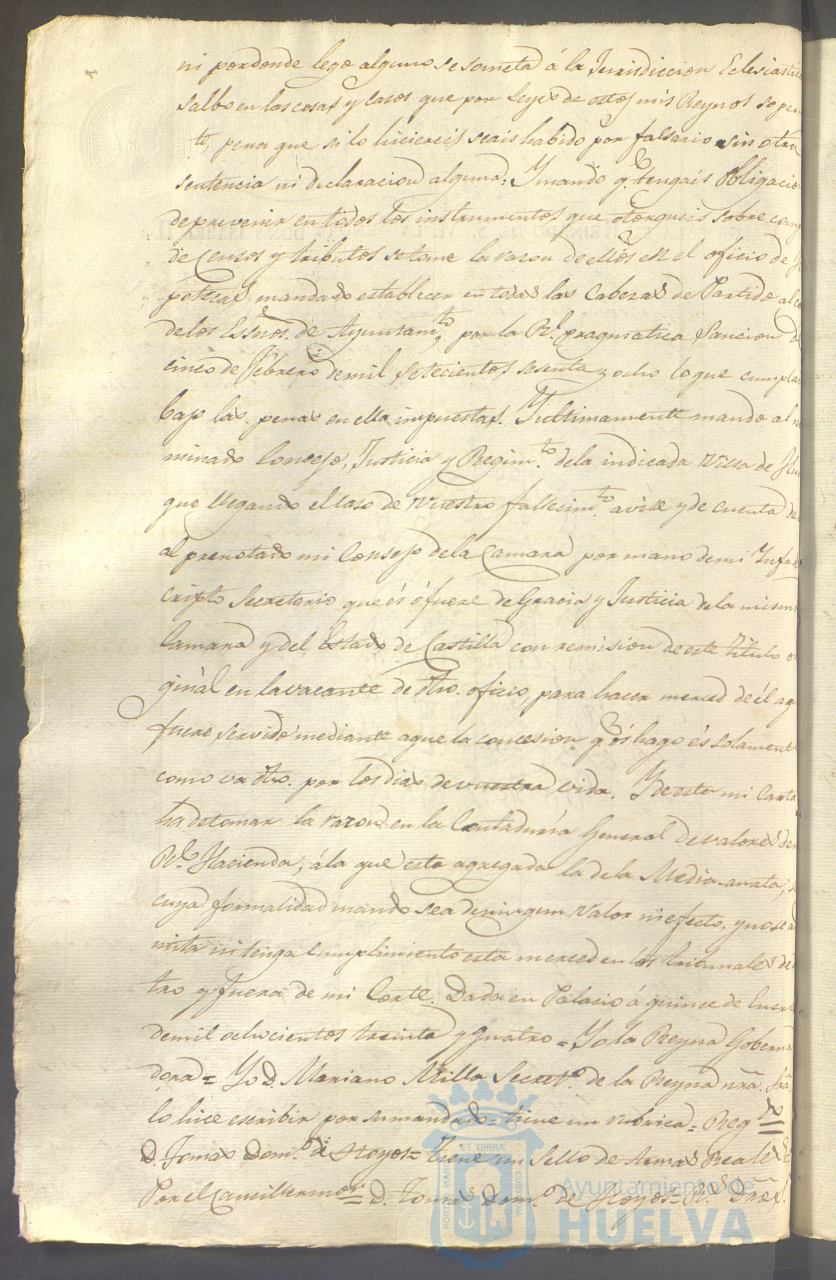 ni por donde lego alguno se someta á la Jurisdiccion Eclesiasti
salbo en las cosas y casos que por Leyes de estos mis Reynos se per
te, pena que si lo hiciereis seais habido por falsario sin otra
sentencia ni declaracion alguna: Y mando q.e tengais obligacion
de prevenir en todos los instrumentos que otorgueis sobre comp
de Censos y tributos se tome la razon de ellos en el oficio de
potecas mandado establecer en todas las Cabezas de Partido al c
de los Essnos. de Ayuntam.to, por la R.l pragmatica sancion de
cinco de Febrero de mil setecientos sesenta y ocho lo que cumpla
bajo las penas en ella impuestas. Y ultimamente mando al
minado Concejo, Justicia y Regim.to de la indicada Villa de Hu
que llegando el caso de vuestro fallecim.to avise y de cuenta de
al prenotado mi Consejo de la Camara por mano de mi Infras
cripto Secretario que és ó fuere de Gracia y Justicia de la misma
Camara y del Estado de Castilla con remision de este titulo o
ginal en la vacante de dho. oficio, para hacer merced de él a q
fuere servido mediante a que la concesion q.e ós hago és solament
como va dho. por los dias de vuestra vida. Y de esta mi Carta
ha de tomar la razon en la Contaduria General de valores de
R.l Hacienda, á la que esta agregada la de la Media-anata; s
cuya formalidad mando sea de ningun valor ni efecto, y no se ad
mita ni tenga cumplimiento esta merced en los tribunales de
tro y fuera de mi Corte. Dada en Palacio á quince de Enero
de mil ochocientos treinta y quatro = Yo la Reyna Goberna
dora = Yo D. Mariano Milla Secret.o de la Reyna nra. Sra
lo hice escribir por su mandado = tiene un rubrica = Reg.do =
D. Tomas Dom.o de Hoyos = tiene un Sello de Armas Reales =
Por el Canciller mor = D. Tomas Dom.o de Hoyos = R.s Dros.
Ayuntamiento de
HUELVA